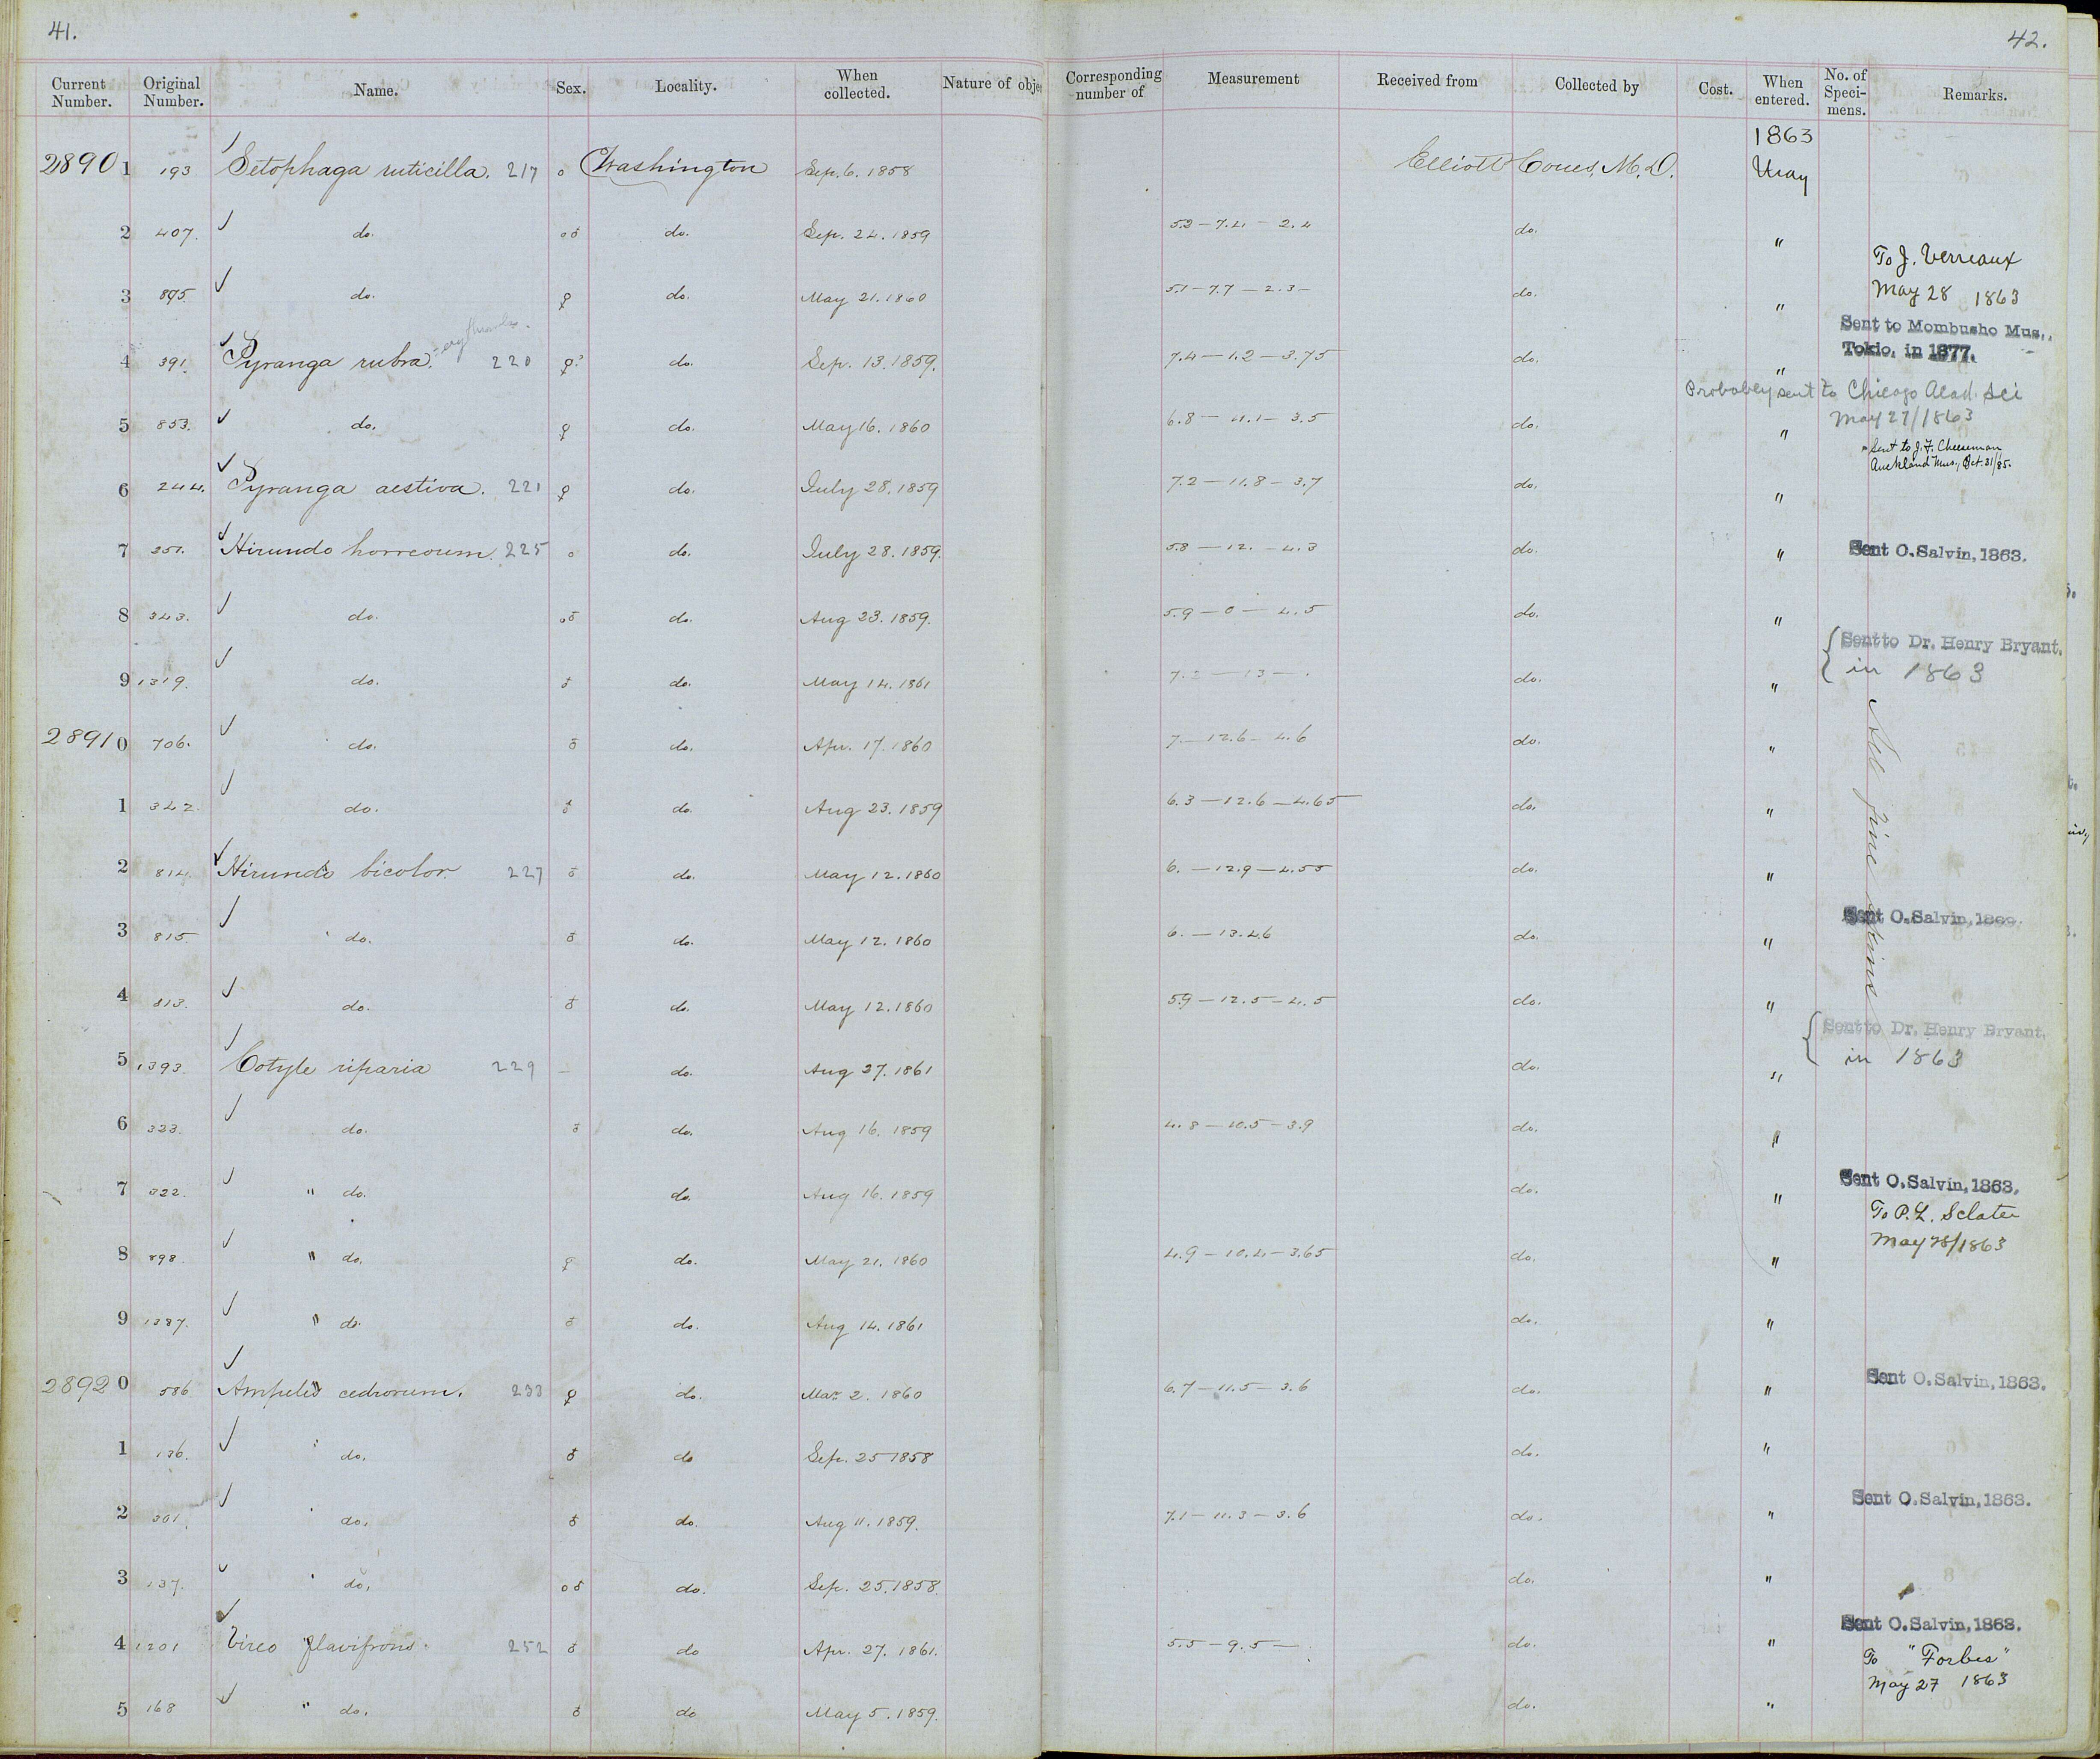 41.
42.
Current Number. Original Number. Name. Sex. Locality. When collected. Nature of obje Corresponding number of Measurement Received from Collected by Cost. When entered. No. of Specimens. Remarks.
1863
28901 193 Setophaga ruticilla. 217 o Washington Sep. 6. 1858 Elliott Coues, M.D. May
2 407. do. o♂ do. Sep. 24. 1859 5.2 — 7.4 — 2.4 do. "
To J. Verreaux
3 895. do. ♀ do. May 21. 1860 5.1 — 7.7 — 2.3 — do. " May 28 1863
Sent to Mombusho Mus.,
4 391. Pyranga rubra. 220 ♀? do. Sep. 13. 1859. 7.4 — 1.2 — 3.75 do. " Tokio, in 1877.
Probabley sent to Chicago Acad. Sci
May 27/1863
5 853. do. ♀ do. May 16. 1860 6.8 — 11.1 — 3.5 do. "
Sent to J. F. Cheeseman
Auckland Mus., Oct. 31/85.
6 244. Pyranga aestiva. 221 ♀ do. July 28. 1859 7.2 — 11.8 — 3.7 do. "
7 251. Hirundo horreorum. 225 o do. July 28. 1859. 5.8 — 12. — 4.3 do. " Sent O. Salvin, 1863.
8 343. do. o♂ do. Aug 23. 1859. 5.9 — 0 — 4.5 do. "
Sent to Dr. Henry Bryant.
9 1319. do. ♂ do. May 14. 1861 7.2 — 13 — . do. " in 1863
28910 706. do. ♂ do. Apr. 17. 1860 7 — 12.6 — 4.6 do. "
1 342. do. ♂ do. Aug 23. 1859 6.3 — 12.6 — 4.65 do. "
2 814. Hirundo bicolor. 227 ♂ do. May 12. 1860 6. — 12.9 — 4.55 do. "
3 815 do. ♂ do. May 12. 1860 6. — 13.4.6 do. " Sent O. Salvin, 1863.
4 813. do. ♂ do. May 12. 1860 5.9 — 12.5 — 4.5 do. "
Sent to Dr. Henry Bryant.
5 1393. Cotyle riparia 229 — do. Aug 27. 1861 do. " in 1863
6 323. do. ♂ do. Aug 16. 1859 4.8 — 10.5 — 3.9 do. "
7 322. " do. do. Aug 16. 1859 do. " Sent O. Salvin, 1863.
To P. L. Sclater
May 28/1863
8 898. " do. ♀ do. May 21. 1860 4.9 — 10.4 — 3.65 do. "
9 1387. " do. ♂ do. Aug 14. 1861 do. "
28920 586 Ampelis cedrorum. 233 ♀ do. Mar. 2. 1860 6.7 — 11.5 — 3.6 do. " Sent O. Salvin, 1863.
1 136. do. ♂ do Sep. 25 1858 do. "
2 301. do. ♂ do. Aug 11. 1859. 7.1 — 11.3 — 3.6 do. " Sent O. Salvin, 1863.
3 137. do. o♂ do. Sep. 25. 1858. do. "
4 1201 Vireo flavifrons. 252 ♂ do Apr. 27. 1861. 5.5 — 9.5 — do. " Sent O. Salvin, 1863.
To "Forbes"
May 27 1863
5 168 " do. ♂ do May 5. 1859. do. "